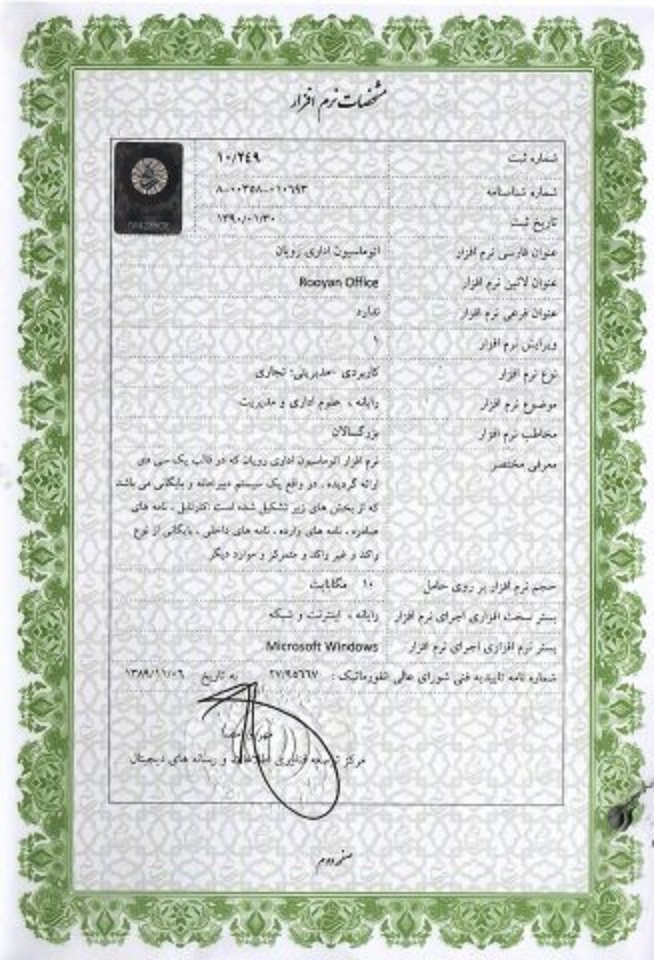 مشخصات نرم افزار
شماره ثبت ۱۰/۲۴۹
شماره شناسنامه ۸-۰۰۳۵۸-۰۱۰۶۹۳
تاریخ ثبت ۱۳۹۰/۰۱/۳۰
عنوان فارسی نرم افزار اتوماسیون اداری رویان
عنوان لاتین نرم افزار Rooyan Office
عنوان فرعی نرم افزار ندارد
ویرایش نرم افزار ۱
نوع نرم افزار کاربردی -مدیریتی- تجاری
موضوع نرم افزار رایانه ، علوم اداری و مدیریت
مخاطب نرم افزار بزرگسالان
معرفی مختصر نرم افزار اتوماسیون اداری رویان که در قالب یک سی دی
ارائه گردیده ، در واقع یک سیستم دبیرخانه و بایگانی می باشد
که از بخش های زیر تشکیل شده است:کارتابل ، نامه های
صادره ، نامه های وارده ، نامه های داخلی ، بایگانی از نوع
راکد و غیر راکد و متمرکز و موارد دیگر
حجم نرم افزار بر روی حامل ۱۰ مگابایت
بستر سخت افزاری اجرای نرم افزار رایانه ، اینترنت و شبکه
بستر نرم افزاری اجرای نرم افزار Microsoft Windows
شماره نامه تاییدیه فنی شورای عالی انفورماتیک : ۲۷/۹۵۶۶۷ به تاریخ ۱۳۸۹/۱۱/۰۶
مهر و امضا
مرکز توسعه فناوری اطلاعات و رسانه های دیجیتال
صفحه دوم